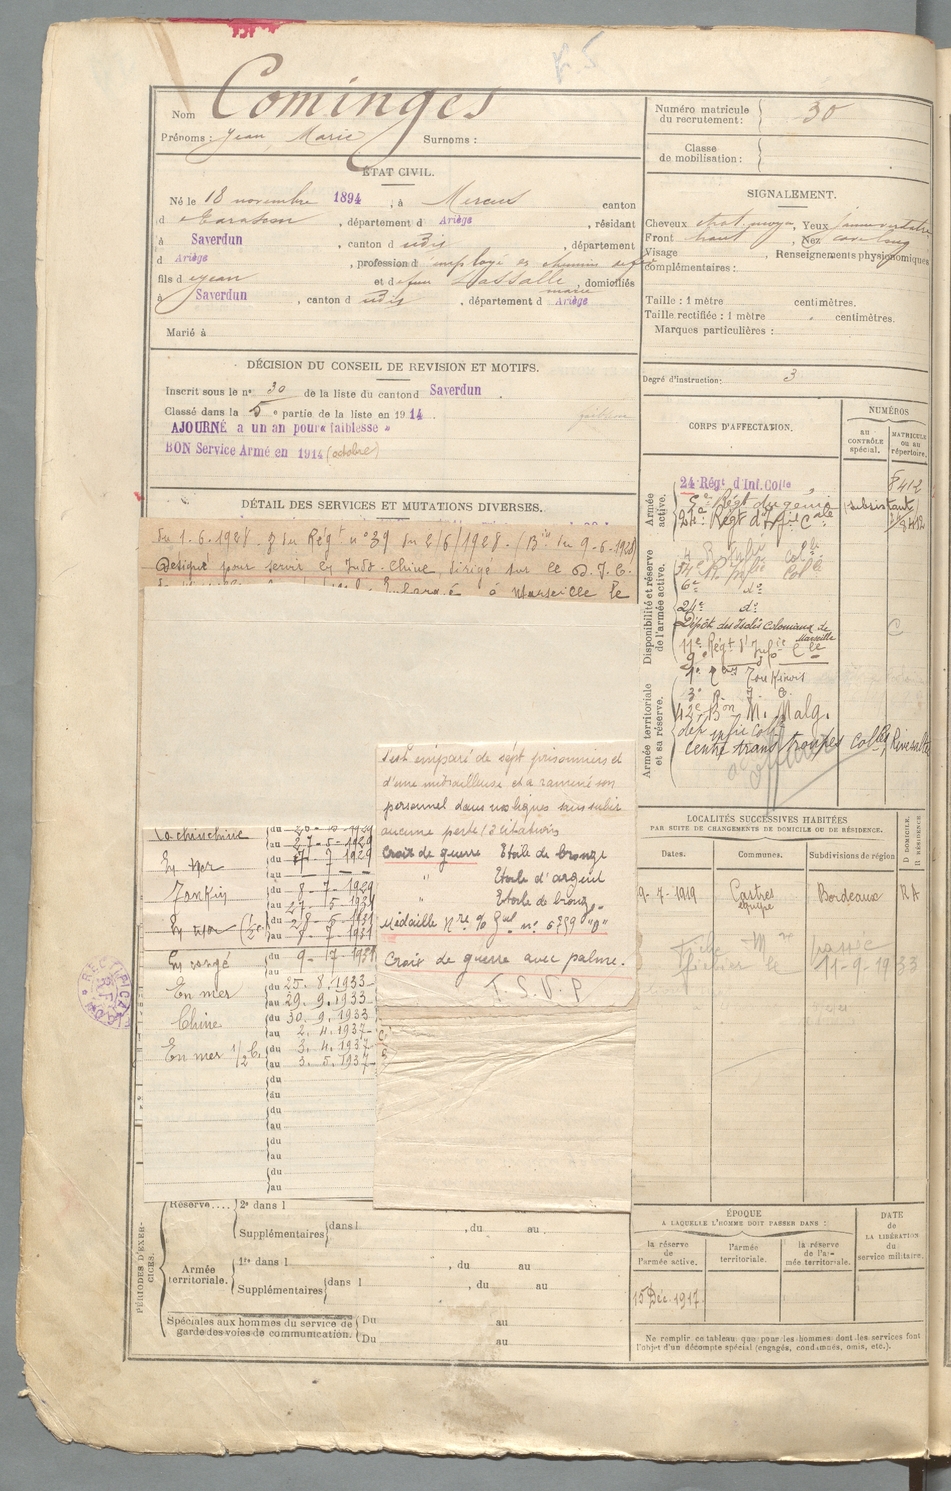 Nom Cominges
Prénoms : Jean Marie Surnoms :
ÉTAT CIVIL.
Né le 18 novembre 1894, à Mercus canton
d Tarascon, département d Ariège, résidant
à Saverdun, canton d udit, département
d Ariège, profession d employé es chemin de fer
fils d e Jean et de feue Lassalle marie, domiciliés
à Saverdun, canton d udit, département d Ariège
Marié à
DÉCISION DU CONSEIL DE REVISION ET MOTIFS.
Inscrit sous le n° 30 de la liste du canton d Saverdun.
Classé dans la 5e partie de la liste en 1914.
AJOURNÉ a un an pour « faiblesse »
BON Service Armé en 1914 (octobre)
DÉTAIL DES SERVICES ET MUTATIONS DIVERSES.
du 1.6.1928. du Régt n° 39 du 2/6/1928. (Bon du 9-6-1928)
Désigné pour servir en Indo-Chine, dirigé sur le D. I. C.
à Marseille le
s'est emparé de sept prisonniers et
d'une mitrailleuse et a ramené son
personnel dans nos lignes sans subir
aucune perte / 3 citations
Croix de guerre Étoile de bronze
" Étoile d'argent
" Étoile de bronze
Médaille
Croix de guerre avec palme.
T. S. V. P
Cochinchine du
au 27-5-1929
En mer du
au 7-7-1929
Tonkin du 8-7-1929
au 27-5-1931
En mer (1/2 C. du 28-5-1931
au 8-7-1931
En congé du 9-7-1931
au
En mer du 25.8.1933
au 29.9.1933
Chine du 30.9.1933
au 2.4.1937
En mer 1/2 C. du 3.4.1937
au 3.5.1937
du
au
du
au
du
au
du
au
PÉRIODES D'EXERCICES.
Réserve.... 2e dans l
Supplémentaires dans l , du au
Armée territoriale. 1re dans l , du au
Supplémentaires dans l , du au
Spéciales aux hommes du service de garde des voies de communication. Du au
Du au
Numéro matricule du recrutement : 30
Classe de mobilisation :
SIGNALEMENT.
Cheveux chat. moyen, Yeux
Front haut, Nez
Visage , Renseignements physionomiques
complémentaires :
Taille : 1 mètre centimètres.
Taille rectifiée : 1 mètre centimètres.
Marques particulières :
Degré d'instruction : 3
CORPS D'AFFECTATION.
NUMÉROS
au CONTRÔLE spécial.
MATRICULE ou au répertoire.
Armée active.
24 Régt d'Inf. Colle 8412
5e Régt du génie subsistant
24e Régt d'Infie Cale 8412
Disponibilité et réserve de l'armée active.
6e do
24e do
Dépôt des Isolés Coloniaux de Marseille C
11e Régt d'Infie Cle
Armée territoriale et sa réserve.
Tonkinois
3e R. I. C.
42e Bon M. Malg.
dep infie Cole
Centre trans troupes colles Rivesaltes
LOCALITÉS SUCCESSIVES HABITÉES
PAR SUITE DE CHANGEMENTS DE DOMICILE OU DE RÉSIDENCE.
Dates. Communes. Subdivisions de région D DOMICILE. R RÉSIDENCE
9-7-1919 Castres Bordeaux RA
Fiche Mre passée
fichier le 11-9-1933
ÉPOQUE
A LAQUELLE L'HOMME DOIT PASSER DANS :
la réserve de l'armée active.
l'armée territoriale.
la réserve de l'armée territoriale.
DATE de LA LIBÉRATION du service militaire.
15 Déc. 1917.
Ne remplir ce tableau que pour les hommes dont les services font
l'objet d'un décompte spécial (engagés, condamnés, omis, etc.).